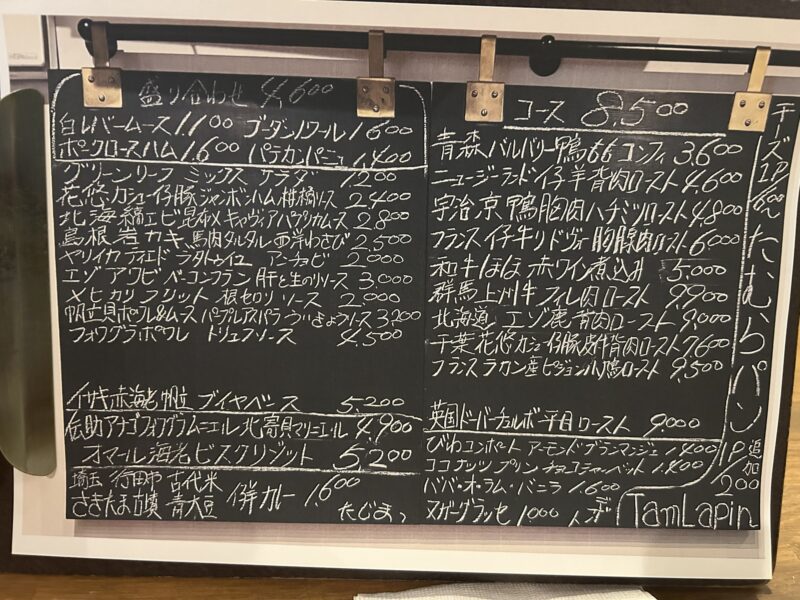 盛り合わせ 4,600
白レバームース 1100 ブーダンノワール 1,600
ポークロースハム 1,600 パテカンパーニュ 1,400
グリーンリーフ ミックス サラダ 1,200
花悠カシュー仔豚ジャンボンハム 柑橘ソース 2,400
北海縞エビ昆布〆 キャヴィア パプリカムース 2,800
島根岩カキ 馬肉タルタル 西洋わさび 2,500
ヤリイカ ティエド ラタトゥイユ アンチョビ 2,000
エゾアワビ ベーコンフラン 肝と生のりソース 3,000
メヒカリ フリット 根セロリ ソース 2,000
帆立貝ポワレ&ムース パープルアスパラ ソース 3,200
フォワグラ ポワレ トリュフソース 4,500
イサキ 赤海老 帆立 ブイヤベース 5,200
伝助アナゴ フォワグラ ムニエル 北寄貝マリニエール 4,900
オマール海老 ビスクリゾット 5,200
埼玉 行田市 古代米
さきたま古墳 青大豆 カレー 1,600
コース 8,500
青森 バルバリー鴨ももコンフィ 3,600
ニュージーランド仔羊背肉ロースト 4,600
宇治 京鴨胸肉ハチミツロースト 4,800
フランス 仔牛リ・ド・ヴォー 胸腺肉ロースト 6,000
和牛ほほ 赤ワイン煮込み 5,000
群馬 上州牛フィレ肉ロースト 9,900
北海道 エゾ鹿背肉ロースト 9,000
千葉花悠カシュー仔豚骨付背肉ロースト 7,600
フランス ラカン産ピジョン 小鳩ロースト 9,500
英国ドーバーチュルボ 平目ロースト 9,000
びわコンポート アーモンドブランマンジェ 1,400
ココナッツプリン チョコシャーベット 1,400
ババ・オ・ラム・バニラ 1,600
ヌガーグラッセ 1,000
チーズ1P/600
たむらパン
1P追加200
TamLapin